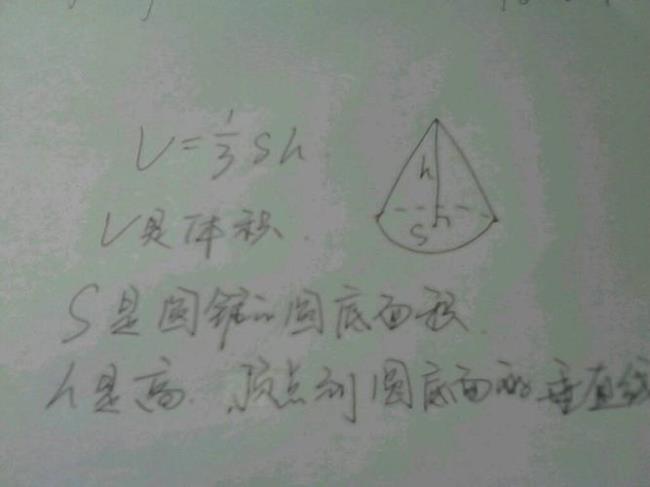 V=1/3 Sh
h
S
V是体积.
S是圆锥的圆底面积.
h是高.顶点到圆底面的垂直线